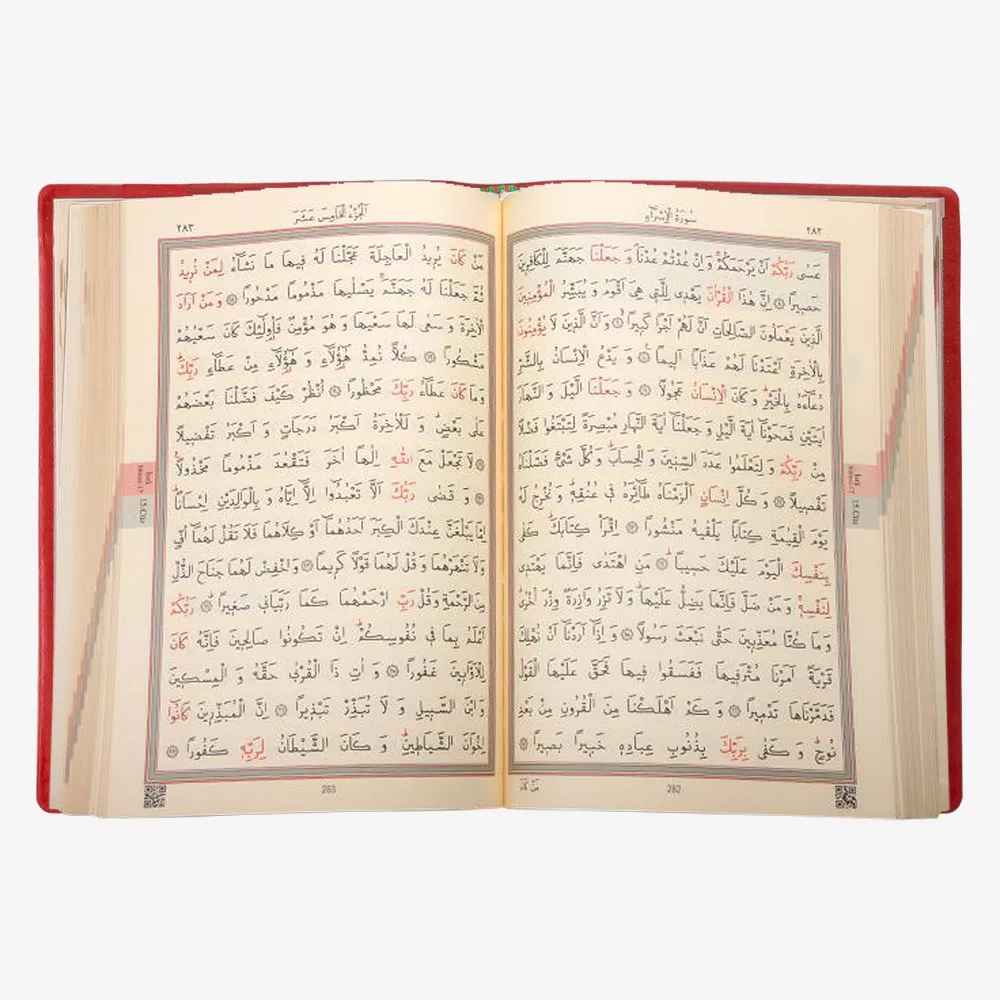 سُورَةُ الْاِسْرَاءِ
٢٨٢
عَسٰى رَبُّكُمْ اَنْ يَرْحَمَكُمْ وَاِنْ عُدْتُمْ عُدْنَا وَجَعَلْنَا جَهَنَّمَ لِلْكَافِرِينَ
حَصِيرًا ۝ اِنَّ هٰذَا الْقُرْاٰنَ يَهْدِى لِلَّتِى هِىَ اَقْوَمُ وَيُبَشِّرُ الْمُؤْمِنِينَ
الَّذِينَ يَعْمَلُونَ الصَّالِحَاتِ اَنَّ لَهُمْ اَجْرًا كَبِيرًا ۝ وَاَنَّ الَّذِينَ لَا يُؤْمِنُونَ
بِالْاٰخِرَةِ اَعْتَدْنَا لَهُمْ عَذَابًا اَلِيمًا ۝ وَيَدْعُ الْاِنْسَانُ بِالشَّرِّ
دُعَاءَهُ بِالْخَيْرِ وَكَانَ الْاِنْسَانُ عَجُولًا ۝ وَجَعَلْنَا الَّيْلَ وَالنَّهَارَ
اٰيَتَيْنِ فَمَحَوْنَا اٰيَةَ الَّيْلِ وَجَعَلْنَا اٰيَةَ النَّهَارِ مُبْصِرَةً لِتَبْتَغُوا فَضْلًا
مِنْ رَبِّكُمْ وَلِتَعْلَمُوا عَدَدَ السِّنِينَ وَالْحِسَابَ وَكُلَّ شَىْءٍ فَصَّلْنَاهُ
تَفْصِيلًا ۝ وَكُلَّ اِنْسَانٍ اَلْزَمْنَاهُ طَائِرَهُ فِى عُنُقِهِ وَنُخْرِجُ لَهُ
يَوْمَ الْقِيٰمَةِ كِتَابًا يَلْقٰيهُ مَنْشُورًا ۝ اِقْرَأْ كِتَابَكَ كَفٰى
بِنَفْسِكَ الْيَوْمَ عَلَيْكَ حَسِيبًا ۝ مَنِ اهْتَدٰى فَاِنَّمَا يَهْتَدِى
لِنَفْسِهِ وَمَنْ ضَلَّ فَاِنَّمَا يَضِلُّ عَلَيْهَا وَلَا تَزِرُ وَازِرَةٌ وِزْرَ اُخْرٰى
وَمَا كُنَّا مُعَذِّبِينَ حَتّٰى نَبْعَثَ رَسُولًا ۝ وَاِذَا اَرَدْنَا اَنْ نُهْلِكَ
قَرْيَةً اَمَرْنَا مُتْرَفِيهَا فَفَسَقُوا فِيهَا فَحَقَّ عَلَيْهَا الْقَوْلُ
فَدَمَّرْنَاهَا تَدْمِيرًا ۝ وَكَمْ اَهْلَكْنَا مِنَ الْقُرُونِ مِنْ بَعْدِ
نُوحٍ وَكَفٰى بِرَبِّكَ بِذُنُوبِ عِبَادِهِ خَبِيرًا بَصِيرًا ۝
مَنْ كَانَ
282
اَلْجُزْءُ الْخَامِسَ عَشَرَ
٢٨٣
مَنْ كَانَ يُرِيدُ الْعَاجِلَةَ عَجَّلْنَا لَهُ فِيهَا مَا نَشَاءُ لِمَنْ نُرِيدُ
ثُمَّ جَعَلْنَا لَهُ جَهَنَّمَ يَصْلٰيهَا مَذْمُومًا مَدْحُورًا ۝ وَمَنْ اَرَادَ
الْاٰخِرَةَ وَسَعٰى لَهَا سَعْيَهَا وَهُوَ مُؤْمِنٌ فَاُولٰئِكَ كَانَ سَعْيُهُمْ
مَشْكُورًا ۝ كُلًّا نُمِدُّ هٰؤُلَاءِ وَهٰؤُلَاءِ مِنْ عَطَاءِ رَبِّكَ
وَمَا كَانَ عَطَاءُ رَبِّكَ مَحْظُورًا ۝ اُنْظُرْ كَيْفَ فَضَّلْنَا بَعْضَهُمْ
عَلٰى بَعْضٍ وَلَلْاٰخِرَةُ اَكْبَرُ دَرَجَاتٍ وَاَكْبَرُ تَفْضِيلًا
۝ لَا تَجْعَلْ مَعَ اللّٰهِ اِلٰهًا اٰخَرَ فَتَقْعُدَ مَذْمُومًا مَخْذُولًا
۝ وَقَضٰى رَبُّكَ اَلَّا تَعْبُدُوا اِلَّا اِيَّاهُ وَبِالْوَالِدَيْنِ اِحْسَانًا
اِمَّا يَبْلُغَنَّ عِنْدَكَ الْكِبَرَ اَحَدُهُمَا اَوْ كِلَاهُمَا فَلَا تَقُلْ لَهُمَا اُفٍّ
وَلَا تَنْهَرْهُمَا وَقُلْ لَهُمَا قَوْلًا كَرِيمًا ۝ وَاخْفِضْ لَهُمَا جَنَاحَ الذُّلِّ
مِنَ الرَّحْمَةِ وَقُلْ رَبِّ ارْحَمْهُمَا كَمَا رَبَّيَانِى صَغِيرًا ۝ رَبُّكُمْ
اَعْلَمُ بِمَا فِى نُفُوسِكُمْ اِنْ تَكُونُوا صَالِحِينَ فَاِنَّهُ كَانَ
لِلْاَوَّابِينَ غَفُورًا ۝ وَاٰتِ ذَا الْقُرْبٰى حَقَّهُ وَالْمِسْكِينَ
وَابْنَ السَّبِيلِ وَلَا تُبَذِّرْ تَبْذِيرًا ۝ اِنَّ الْمُبَذِّرِينَ كَانُوا
اِخْوَانَ الشَّيَاطِينِ وَكَانَ الشَّيْطَانُ لِرَبِّهِ كَفُورًا ۝
283
15.Cüz